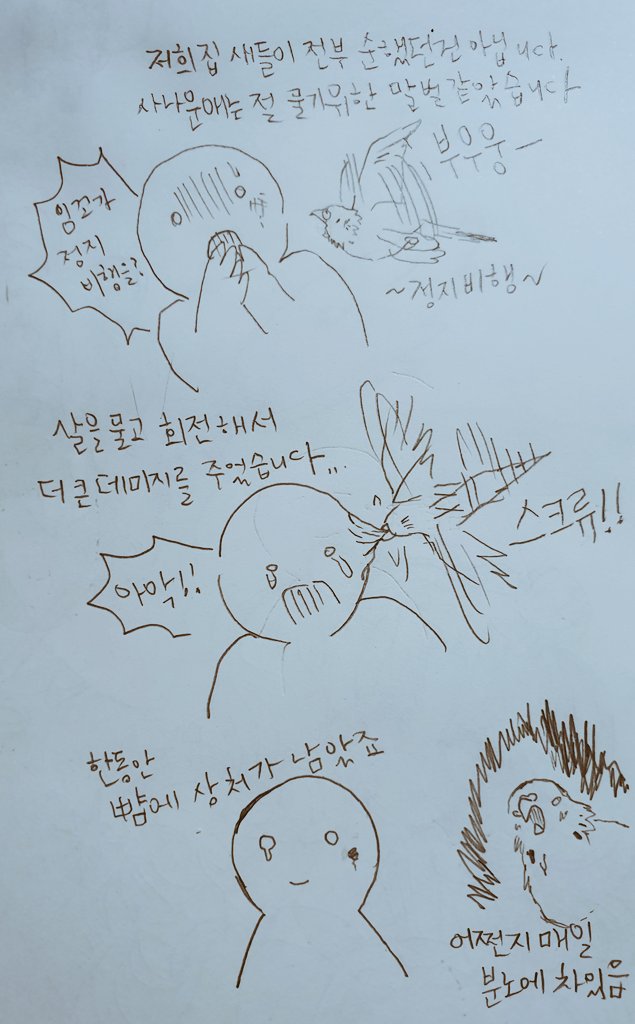 저희집 새들이 전부 순했던건 아닙니다.
사나운애는 절 물기위한 말벌같았습니다
부우웅ー
잉꼬가
정지
비행을?
~정지비행~
살을 물고 회전해서
더 큰 데미지를 주었습니다...
스크류!!
아악!!
한동안
뺨에 상처가 남았죠
어쩐지 매일
분노에 차있음